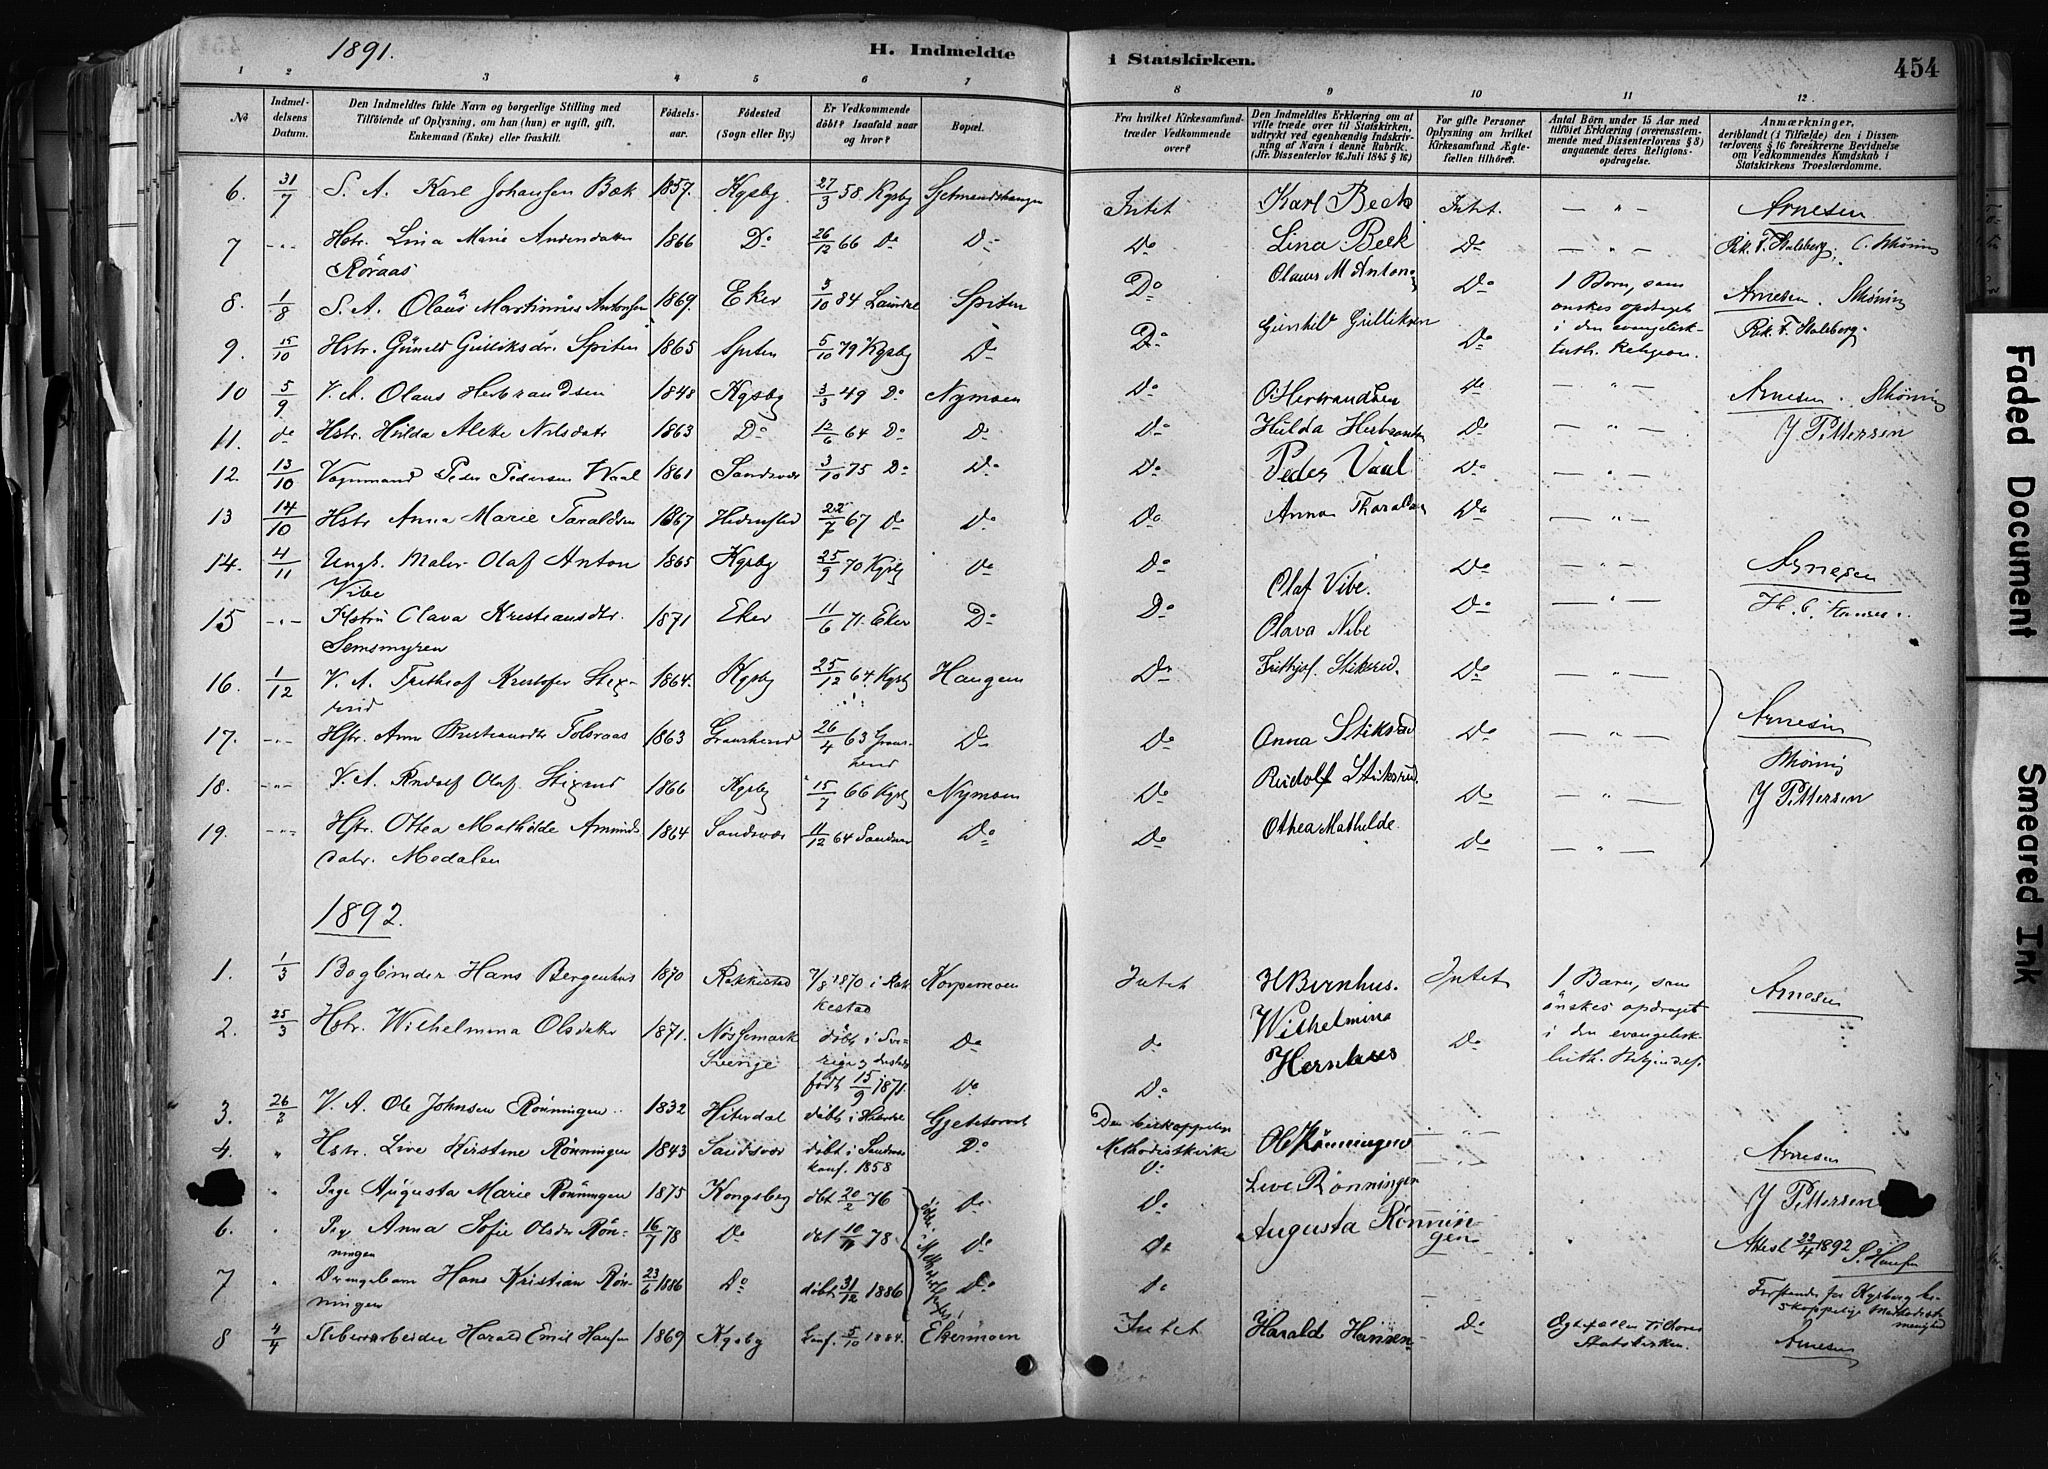 1891.
H. Indmeldte i Statskirken.
454
1 2 3 4 5 6 7 8 9 10 11 12
No
Indmeldelsens Datum.
Den Indmeldtes fulde Navn og borgerlige Stilling med Tilföiende af Oplysning, om han (hun) er ugift, gift, Enkemand (Enke) eller fraskilt.
Födselsaar.
Födested (Sogn eller By.)
Er Vedkommende döbt? Isaafald naar og hvor?
Bopæl.
Fra hvilket Kirkesamfund træder Vedkommende over?
Den Indmeldtes Erklæring om at ville træde over til Statskirken, udtrykt ved egenhændig Indskrivning af Navn i denne Rubrik. (Jfr. Dissenterlov 16 Juli 1845 § 16)
For gifte Personer Oplysning om hvilket Kirkesamfund Ægtefællen tilhörer.
Antal Börn under 15 Aar med tilföiet Erklæring (overensstemmende med Dissenterlovens § 8) angaaende deres Religionsopdragelse.
Anmærkninger, deriblandt (i Tilfælde) den i Dissenterlovens § 16 foreskrevne Bevidnelse om Vedkommendes Kundskab i Statskirkens Troeslærdomme.
6. 31/7 S. A. Karl Johansen Bæk 1857. Kgsby. 27/3 58 Kgsby Intet Karl Beck Intet. — " — Arnesen
7 -"- Hstr. Lina Marie Andersdatter Røraas 1866 Do 26/12 66 Do Do Do Lina Beck Do — " — Stalsberg.
8. 1/8 S. A. Olaus Martinius Antonsen 1869. Eker 3/10 84 Spiten Do Olaus M Antons Do 1 Barn, som ønskes opdraget i den evangelisk-luth. Religion. Arnesen. Skøning
9. 15/10 Hstr. Gunild Gulliksdr. Spiten 1865 Spiten 5/10 79 Kgsby Do Do Gunhild Gulliksen Do Stalsberg
10 5/9 V. A. Olaus Herbrandsen 1848 Kgsby 3/3 49 Do Nymoen Do O Herbrandsen do — " — Arnesen. Skøning
11. do Hstr. Hulda Nilsdatr 1863 Do 12/6 64 Do Do Do Hulda Do — " — J Pettersen
12. 13/10 Vognmand Peder Pedersen Waal 1861 Sandsvær 3/10 75 Do Do Do Peder Vaal Do — " —
13 14/10 Hstr Anna Marie Taraldsen 1867 22/7 67 Do Do Do Anna Do — " —
14. 4/11 Ungk. Maler Olaf Anton Vibe 1865 Kgsby 25/9 70 Kgsby do Do Olaf Vibe. Do — " — Arnesen
15 -"- Olava Kristiansdtr. Semsmyren 1871 Eker 11/6 71. Eker Do Do Olava Vibe Do — " — H. C. Hansen.
16. 1/12 V. A. Frithjof Kristofer Stixrud 1864. Kgsby 25/12 64 Kgsby Haugen Do Frithjof Stiksrud. Do — " —
17. -"- Hstr. Anne Kristiansdtr 1863 Granshered 26/4 63 Granshered Do Do Anna Stiksrud Do — " — Arnesen
18. -"- V. A. Rudolf Olaf Stixrud 1866 Kgsby 15/7 66 Kgsby Nymoen Do Rudolf Stiksrud. Do — " — Skøning
19. -"- Hstr. Ottea Mathilde Amundsdatr. Modalen 1864 Sandsvær 11/12 64 Sandsvær Do Do Othea Mathilde. Do — " — J Pettersen
1892.
1. 1/3 Bogbinder Hans 1870 Rakkestad 7/8 1870 i Rakkestad Korpemoen Intet Intet 1 Barn, som ønskes opdraget i den evangelisk-luth. Arnesen
2. 25/3 Hstr. Wilhelmina Olsdatter 1871. Nøssemark Sverige døbt i Sverige født 15/9 1871 Do do Wilhelmina Do
Do Do
3. 26/2 V. A. Ole Johnsen Rønningen 1832 Hiterdal døbt i Hiterdal Den biskoppelige Methodistkirke Ole Rønningen
4. " Hstr. Live Kirstine Rønningen 1843 Sandsvær døbt i Sandsvær konf. 1858 Do Do Live Rønningen Arnesen
" Pige Augusta Marie Rønningen 1875 Kongsberg døbt 20/2 76 Do Do Augusta Rønningen J Pettersen
6. " Pige Anna Sofie Olsdr Rønningen 16/7 78 Do 78 Do Do Attest 22/4 1892 S. Hansen
7 " Drengebarn Hans Kristian Rønningen 23/6 1886 Do døbt 31/12 1886 Do do Forstander for Kgsberg biskoppelige Methodistmenighed
8 4/4 Harald Emil Hansen 1869 Kgsby konf. 5/10 1884. Ekermoen Intet Harald Hansen Do Ægtefællen tilhører Statskirken. Arnesen
Faded Document
Smeared Ink